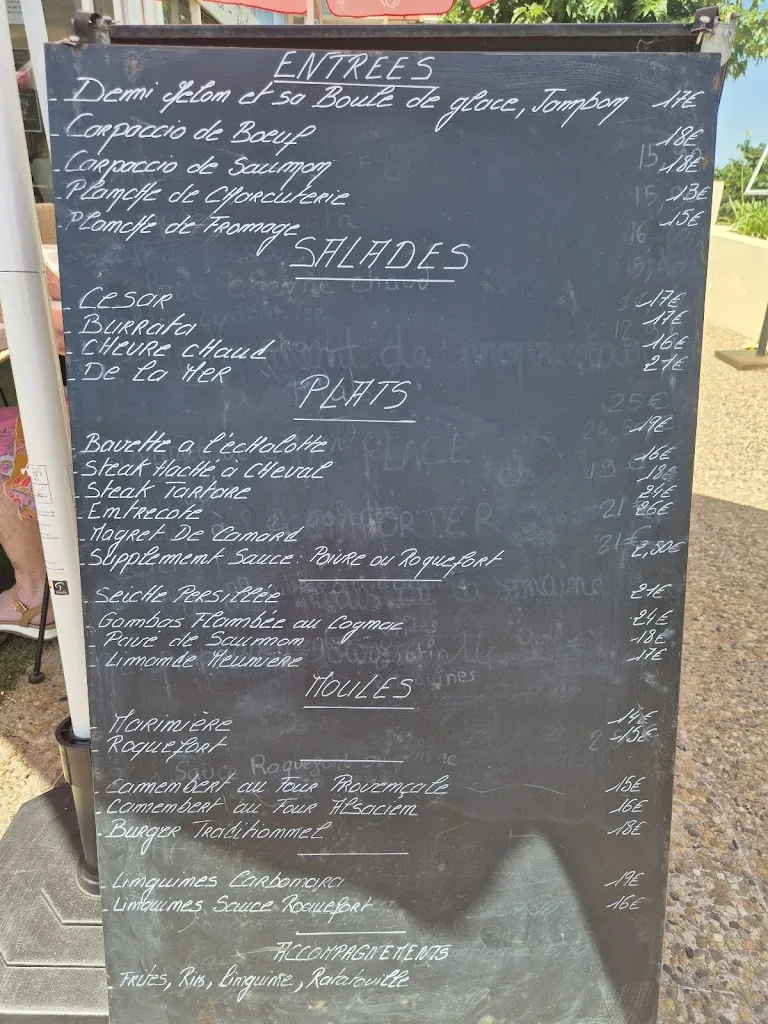 ENTREES
- Demi Melon et sa Boule de glace, Jambon 17€
- Carpaccio de Boeuf 18€
- Carpaccio de Saumon 18€
- Planche de Charcuterie 13€
- Planche de Fromage 15€
SALADES
- Cesar 17€
- Burrata 17€
- Chevre Chaud 16€
- De la Mer 21€
PLATS
- Bavette a l'échalotte 19€
- Steak Haché à Cheval 16€
- Steak Tartare 18€
- Entrecote 24€
- Magret De Canard 26€
- Supplement Sauce: Poivre ou Roquefort 2,50€
- Seiche Persillée 21€
- Gambas Flambée au Cognac 24€
- Pavé de Saumon 18€
- Limande Meunière 17€
MOULES
- Marinière 14€
- Roquefort 15€
- Camembert au Four Provençale 15€
- Camembert au Four Alsacien 16€
- Burger Traditionnel 18€
- Linguines Carbonara 19€
- Linguines Sauce Roquefort 16€
ACCOMPAGNEMENTS
- Frites, Riz, Linguine, Ratatouille